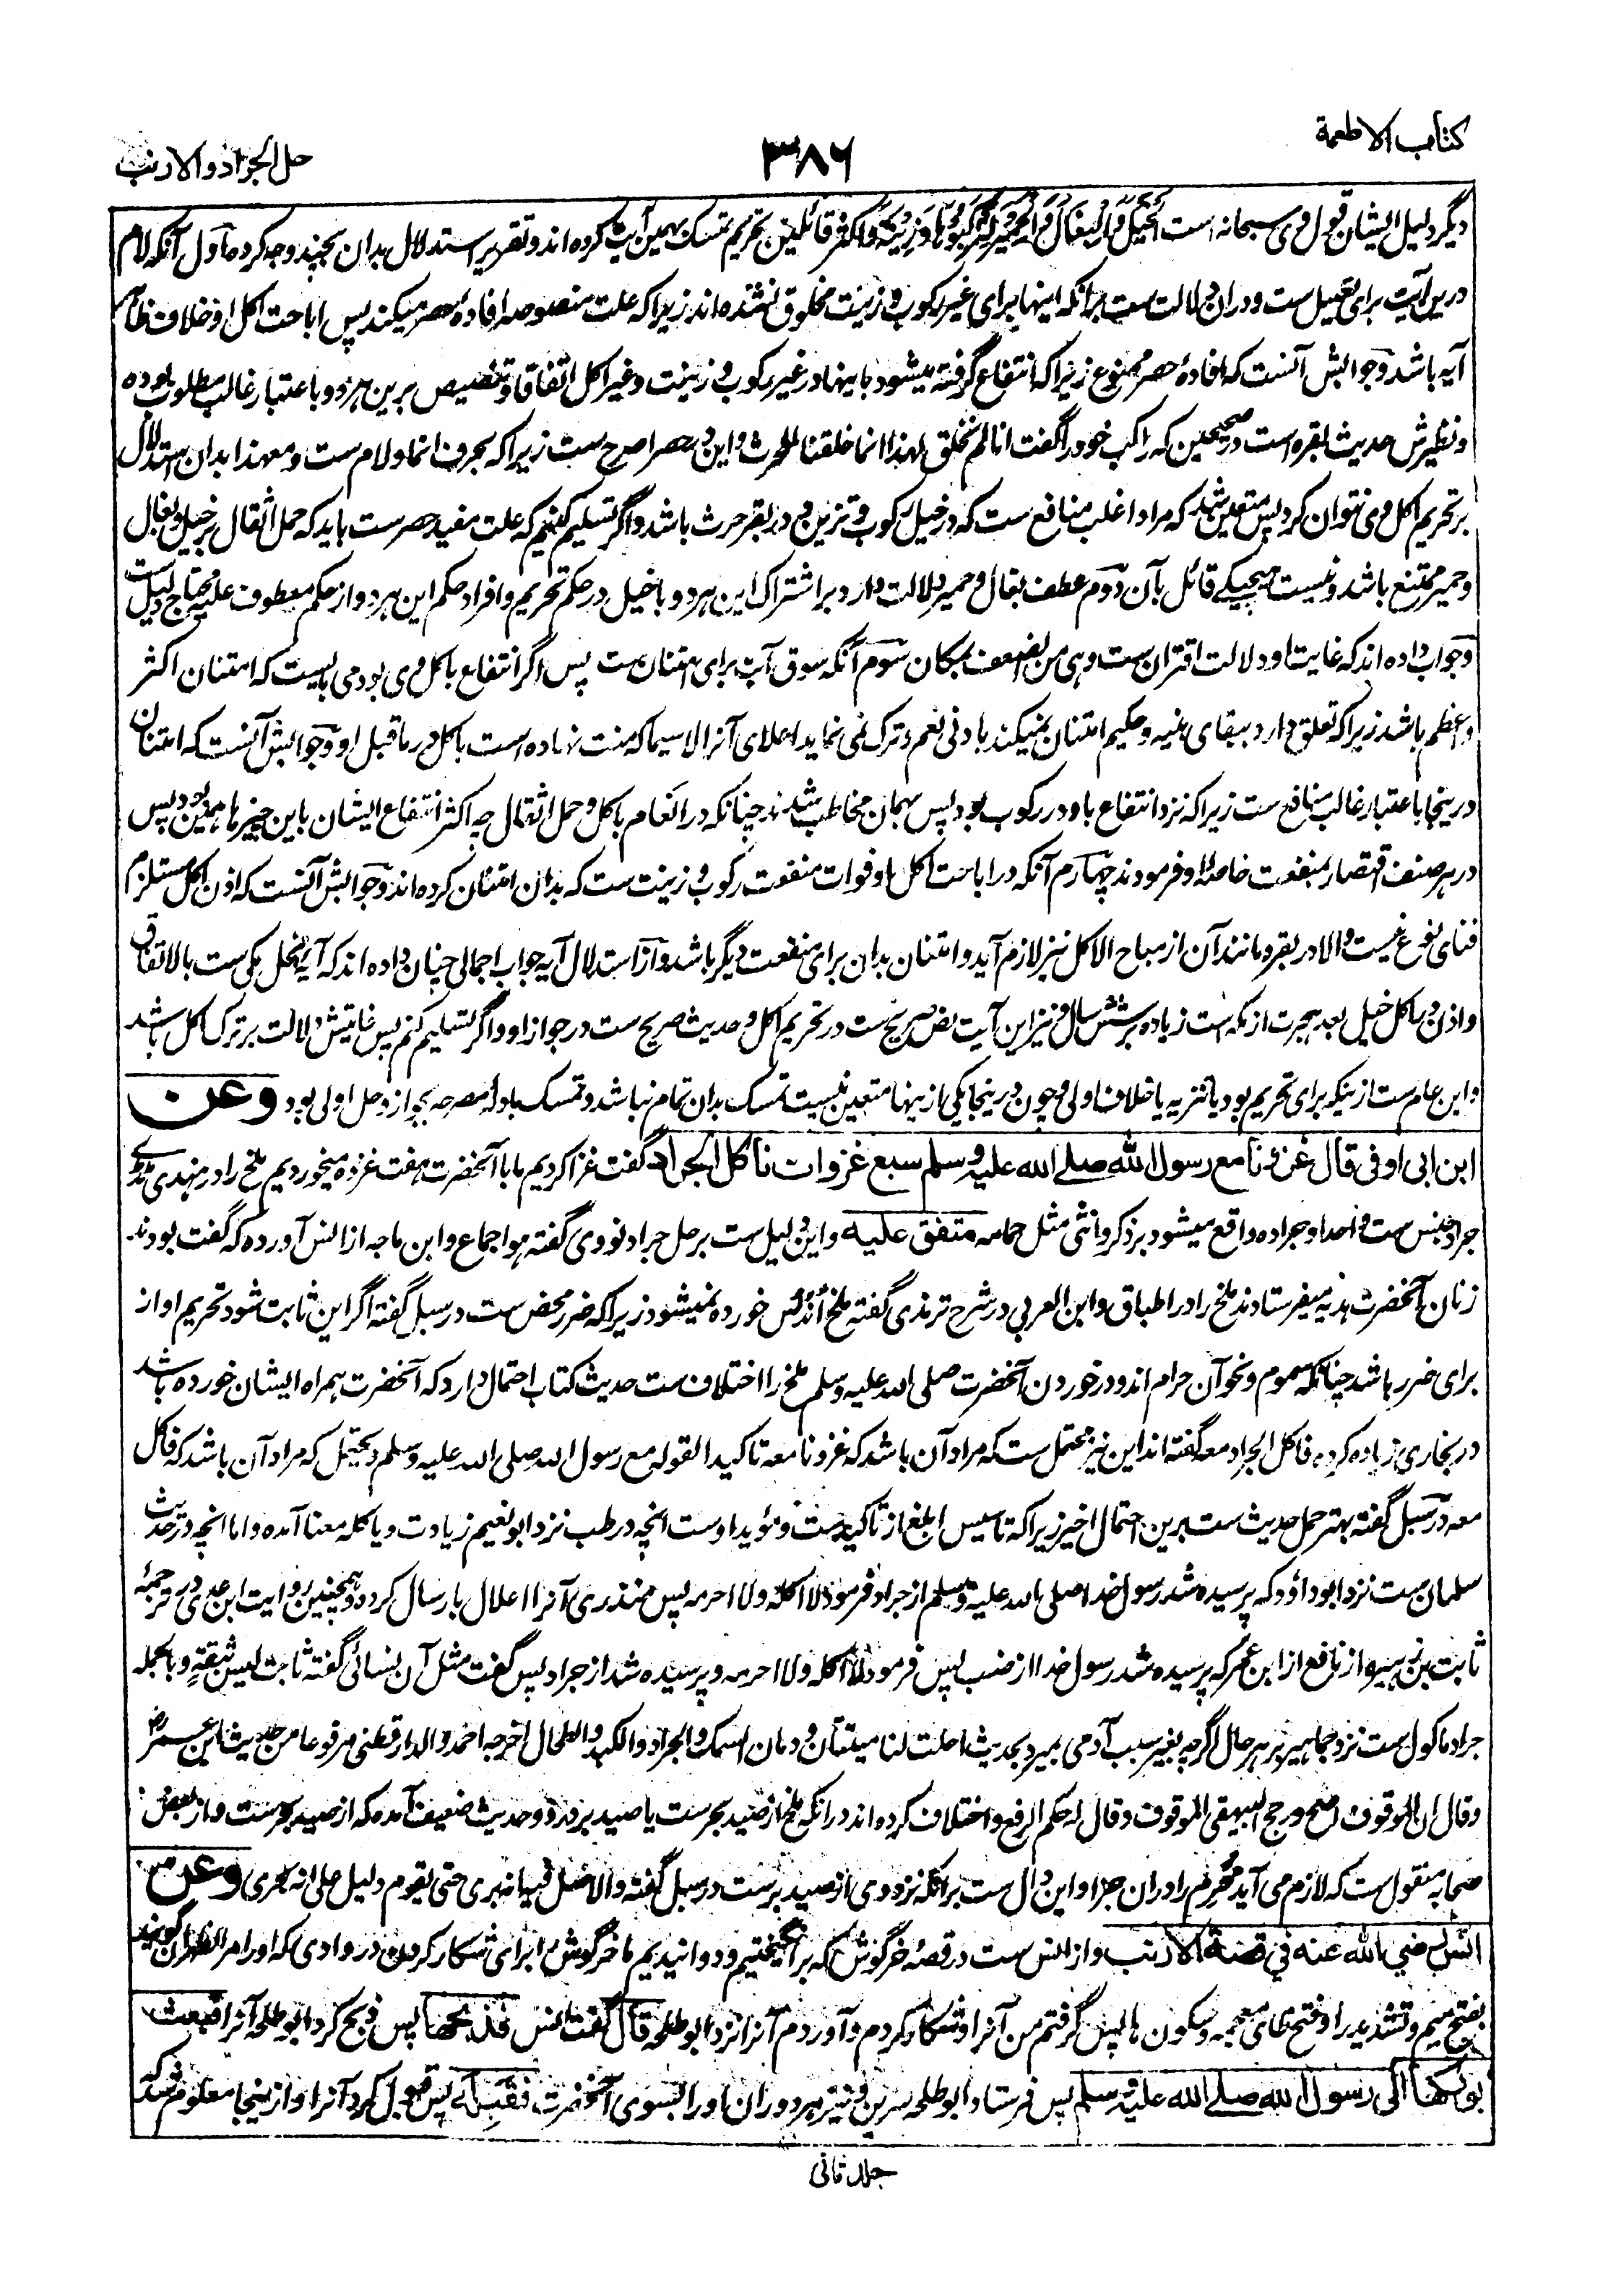 کتاب الاطعمة
۳۸۶
حل الجراد والارنب
دیگر دلیل ایشان قول وی سبحانه است الخَيْلَ وَالْبِغَالَ وَالْحَمِيرَ لِتَرْكَبُوهَا وَزِينَةً واکثر قائلین بتحریم تمسک بهمین آیت کرده اند و تقریر استدلال بدان بچند وجه کرده اول آنکه لام
درین آیت برای تعلیل ست ودران دلالت ست برانکه اینها برای غیر رکوب و زینت مخلوق نشده اند زیرا که علت منصوصه افادهٔ حصر میکند پس اباحت اکل او خلاف ظاهر
آیه باشد وجوابش آنست که افادهٔ حصر ممنوع زیرا که انتفاع گرفته میشود باینها در غیر رکوب و زینت و غیر اکل اتفاقا و تنصیص برین هر دو باعتبار غالب مطلوب بوده
ونظیرش حدیث بقره است در صحیحین که راکب خود را گفت انا لم نخلق لهذا انما خلقنا للحرث واین در حصر اصرح ست زیرا که بحرف انما ولام ست و معهذا بدان استدلال
بر تحریم اکل وی نتوان کرد پس متعین شد که مراد اغلب منافع ست که در خیل رکوب و تزین و در بقر حرث باشد و اگر تسلیم کنیم که علت مفید حصر ست باید که حمل اثقال بر خیل و بغال
وحمیر ممتنع باشد ونیست هیچیکی قائل بآن دوم عطف بغال وحمیر دلالت دارد بر اشتراک این هردو با خیل در حکم تحریم وافراد حکم این هردو از حکم معطوف علیه محتاج دلیل ست
وجواب داده اند که غایت او دلالت اقتران ست وهی من الضعف بمکان سوم آنکه سوق آیت برای امتنان ست پس اگر انتفاع باکل وی بودی بایست که امتنان اکثر
واعظم باشد زیرا که تعلق دارد ببقای بنیه و حکیم امتنان نمیکند بادنی نعم و ترک نمی نماید اعلای آنرا لاسیما که منت نهاده است باکل در ما قبل او وجوابش آنست که امتنان
درینجا باعتبار غالب منافع ست زیرا که نزد انتفاع باو در رکوب بود پس بهمان مخاطب شدند چنانکه در انعام باکل و حمل اثقال چه اکثر انتفاع ایشان باین چیزها همین بود پس
در هر صنف اقتصار بمنفعت خاصهٔ او فرمودند چهارم آنکه در اباحت اکل او فوات منفعت رکوب و زینت ست که بدان امتنان کرده اند وجوابش آنست که اذن اکل مستلزم
فنای نوع نیست والا در بقر ومانند آن از مباح الاکل نیز لازم آید وامتنان بدان برای منفعت دیگر باشد واز استدلال آیه جواب اجمالی چنان داده اند که آیهٔ نحل مکی ست بالاتفاق
واذن در اکل خیل بعد هجرت از مکه است زیاده بر شش سال ونیز این آیت نص صریح نیست در تحریم اکل وحدیث صریح ست در جواز او واگر تسلیم کنم پس غایتش دلالت بر ترک اکل باشد
واین عام ست ازینکه برای تحریم بود یا تنزیه یا خلاف اولی وچون درینجا یکی ازینها متعین نیست تمسک بدان تمام نباشد وتمسک بادلهٔ مصرحه بجواز وحل اولی بود وعن
ابن ابی اوفی قال غزونا مع رسول الله صلے الله علیه وسلم سبع غزوات ناکل الجراد گفت غزا کردیم ما با آنحضرت هفت غزوه میخوردیم ملخ را در هندی ٹڈی
جراد جنس ست واحد او جراده واقع میشود بر ذکر وانثی مثل حمامه متفق علیه واین دلیل ست بر حل جراد نووی گفته هو اجماع وابن ماجه از انس آورده که گفت بودند
زنان آنحضرت هدیه میفرستادند ملخ را در اطباق وابن العربی در شرح ترمذی گفته ملخ اُندُلس خورده نمیشود زیرا که ضرر محض ست در سبل گفته اگر این ثابت شود تحریم او از
برای ضرر باشد چنانکه سموم ونحو آن حرام اند ودر خوردن آنحضرت صلی الله علیه وسلم ملخ را اختلاف ست حدیث کتاب احتمال دارد که آنحضرت همراه ایشان خورده باشد
در بخاری زیاده کرده فاکل الجراد معه گفته اند این نیز محتمل ست که مراد آن باشد که غزونا معه تاکید القوله مع رسول الله صلی الله علیه وسلم ویحتمل که مراد آن باشد که فاکل
معه در سبل گفته بهتر حمل حدیث ست برین احتمال اخیر زیرا که تاسیس ابلغ از تاکید ست ومؤید اوست انچه در طب نزد ابونعیم زیادت ویاکله معنا آمده واما انچه در حدیث
سلمان ست نزد ابوداؤد که پرسیده شد رسول خدا صلی الله علیه وسلم از جراد فرمود لا آکله ولا احرمه پس منذری آنرا اعلال بارسال کرده وهمچنین روایت ابن عدی در ترجمهٔ
ثابت بن زهیر از نافع از ابن عمر که پرسیده شد رسول خدا از ضب پس فرمود لا آکله ولا احرمه وپرسیده شد از جراد پس گفت مثل آن نسائی گفته ثابت لیس بثقة وبالجمله
جراد ماکول ست نزد جماهیر بر هر حال اگرچه بغیر سبب آدمی بمیرد بحدیث احلت لنا میتتان ودمان السمک والجراد والکبد والطحال اخرجه احمد والدارقطنی مرفوعا من حدیث ابن عمر رض
وقال ان الموقوف اصح ورجح البیهقی الموقوف وقال له حکم الرفع واختلاف کرده اند درانکه ملخ از صید بحر ست یا صید بر ودر دو حدیث ضعیف آمده که از صید بحر ست واز بعض
صحابه منقول ست که لازم می آید محرم را دران جزا واین دال ست برانکه نزد وی از صید بر ست در سبل گفته والاصل فیه انه بری حتی یقوم دلیل علی انه بحری وعن
انس رضی الله عنه فی قصة الارنب واز انس ست در قصهٔ خرگوش که برانگیختیم ودوانیدیم ما خرگوش را برای شکار کردن در وادی که او را مر الظهران گویند
بفتح میم وتشدید را وفتح ظای معجمه وسکون ها پس گرفتم من آنرا وشکار کردم وآوردم آنرا نزد ابوطلحه قال گفت انس فذبحها پس ذبح کرد ابوطلحه آنرا فبعث
بورکها الی رسول الله صلے الله علیه وسلم پس فرستاد ابوطلحه سرین ونیز هر دو ران او را بسوی آنحضرت فقبله پس قبول کرد آنرا وازینجا معلوم شد که
جلد ثانی